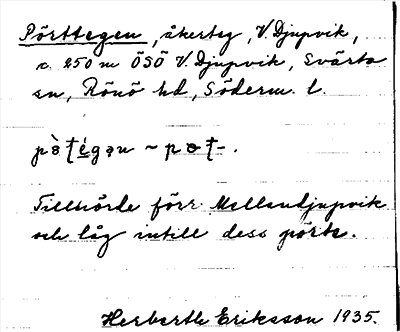 Pörttegen, åkerteg, V. Djupvik,
c. 250 m ÖSÖ V. Djupvik, Svärta
sn, Rönö hd, Söderm. l.
Tillhörde förr Mellandjupvik
och låg intill dess pörte.
Herbertle Eriksson 1935.